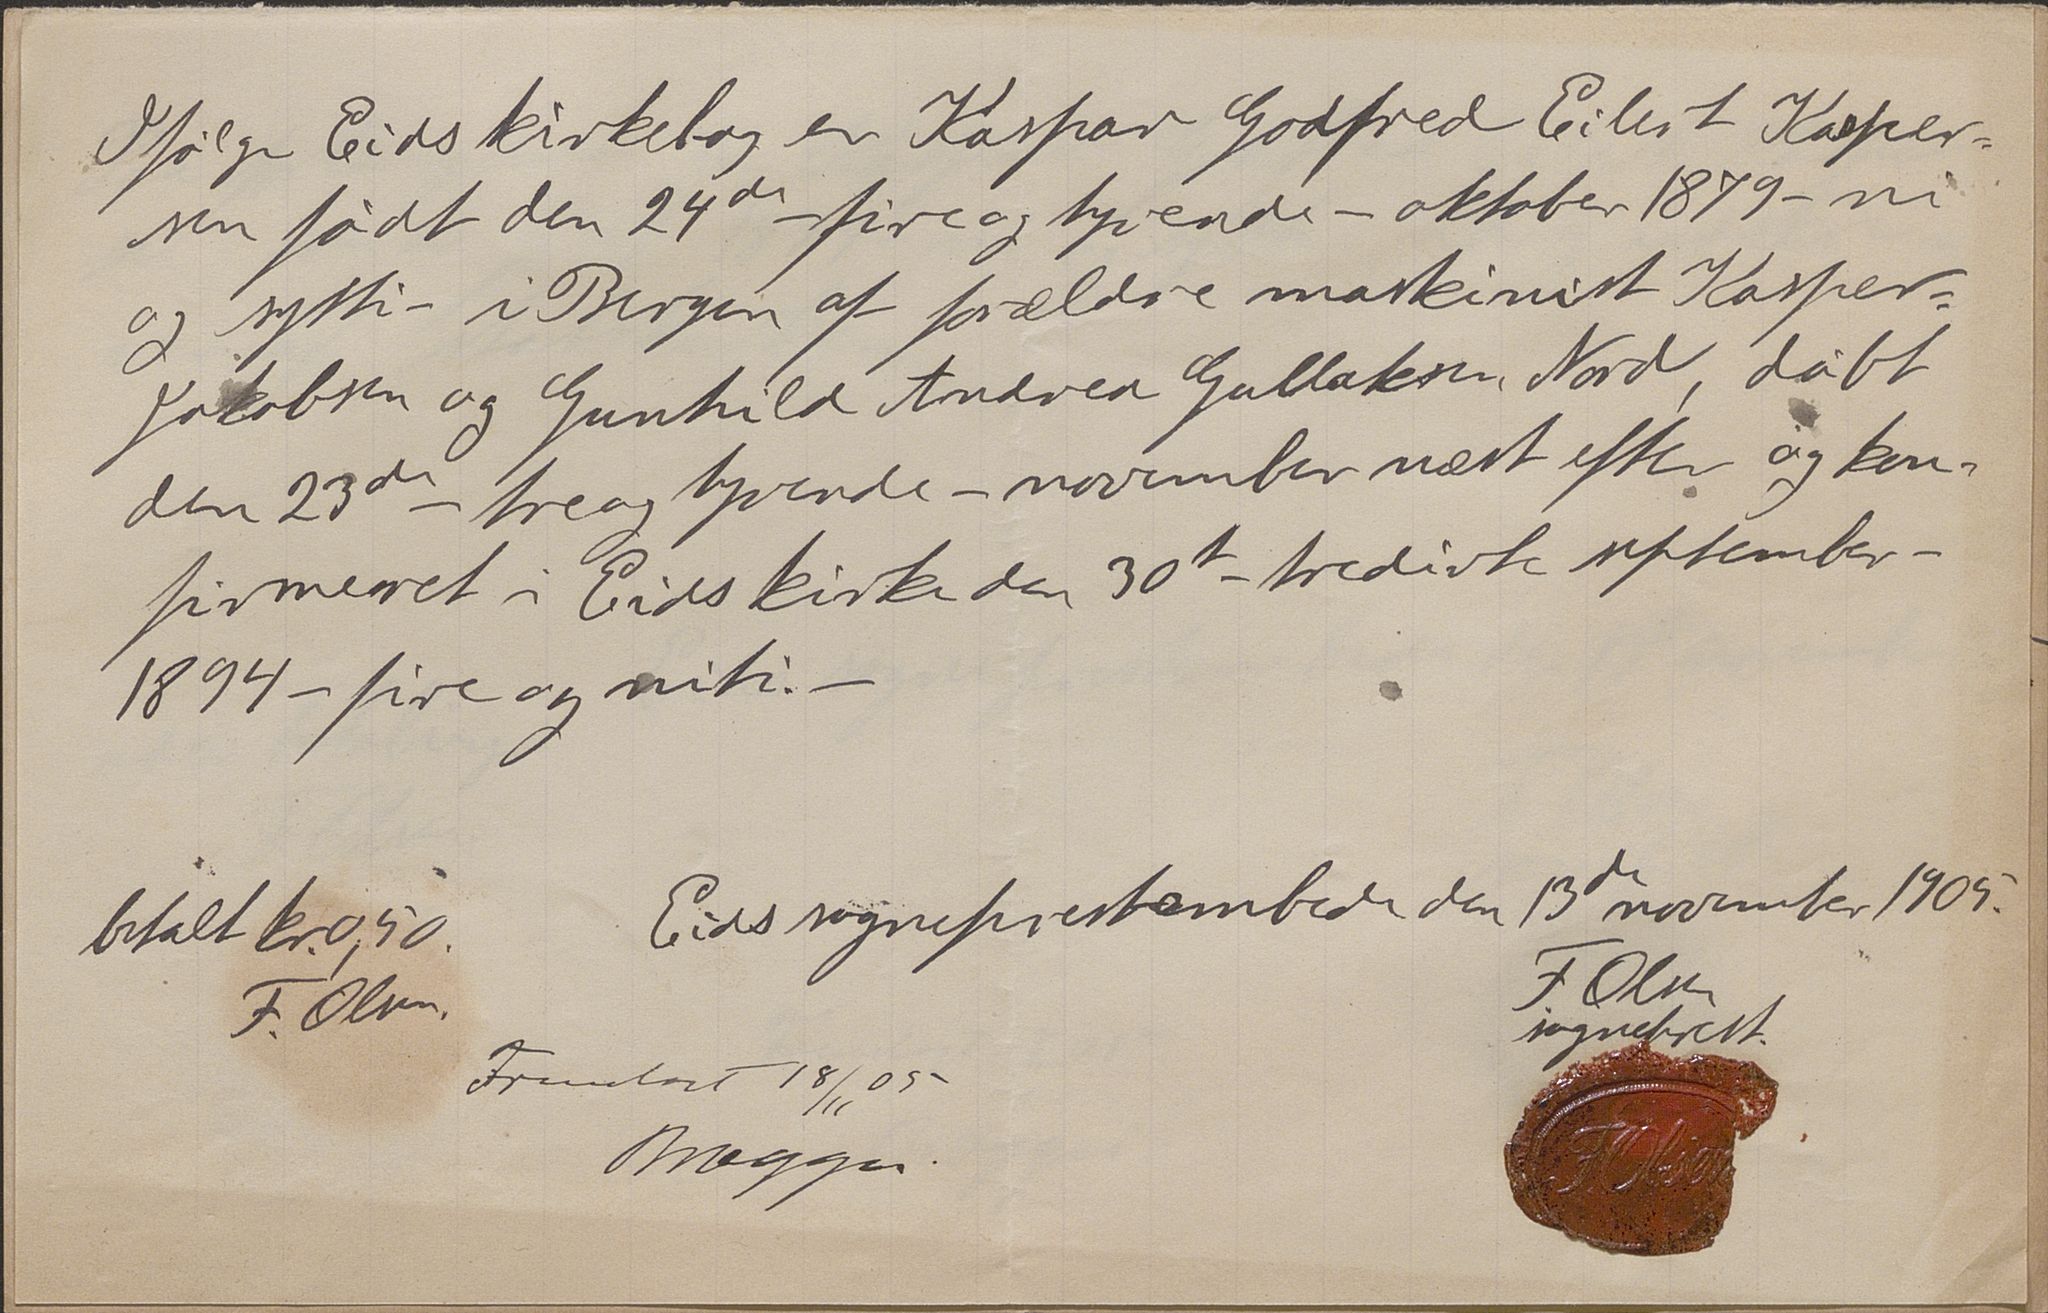 Ifølge Eids kirkebog er Kaspar Godfred Eilert Kasper-
sen født den 24de – fire og tyvende – oktober 1879 – ni
og sytti – i Bergen af forældre maskinist Kasper
Jakobsen og Gunhild Andrea Gullaksen Nord, døbt
den 23de – tre og tyvende – november næst efter og kon-
firmeret i Eids kirke den 30t – tredivte september –
1894 – fire og niti. –
betalt kr. 0,50.
F. Olsen.
Eids sogneprestembede den 13de november 1905.
F. Olsen
sogneprest.
Fremlagt 18/11 05
F. Olsen